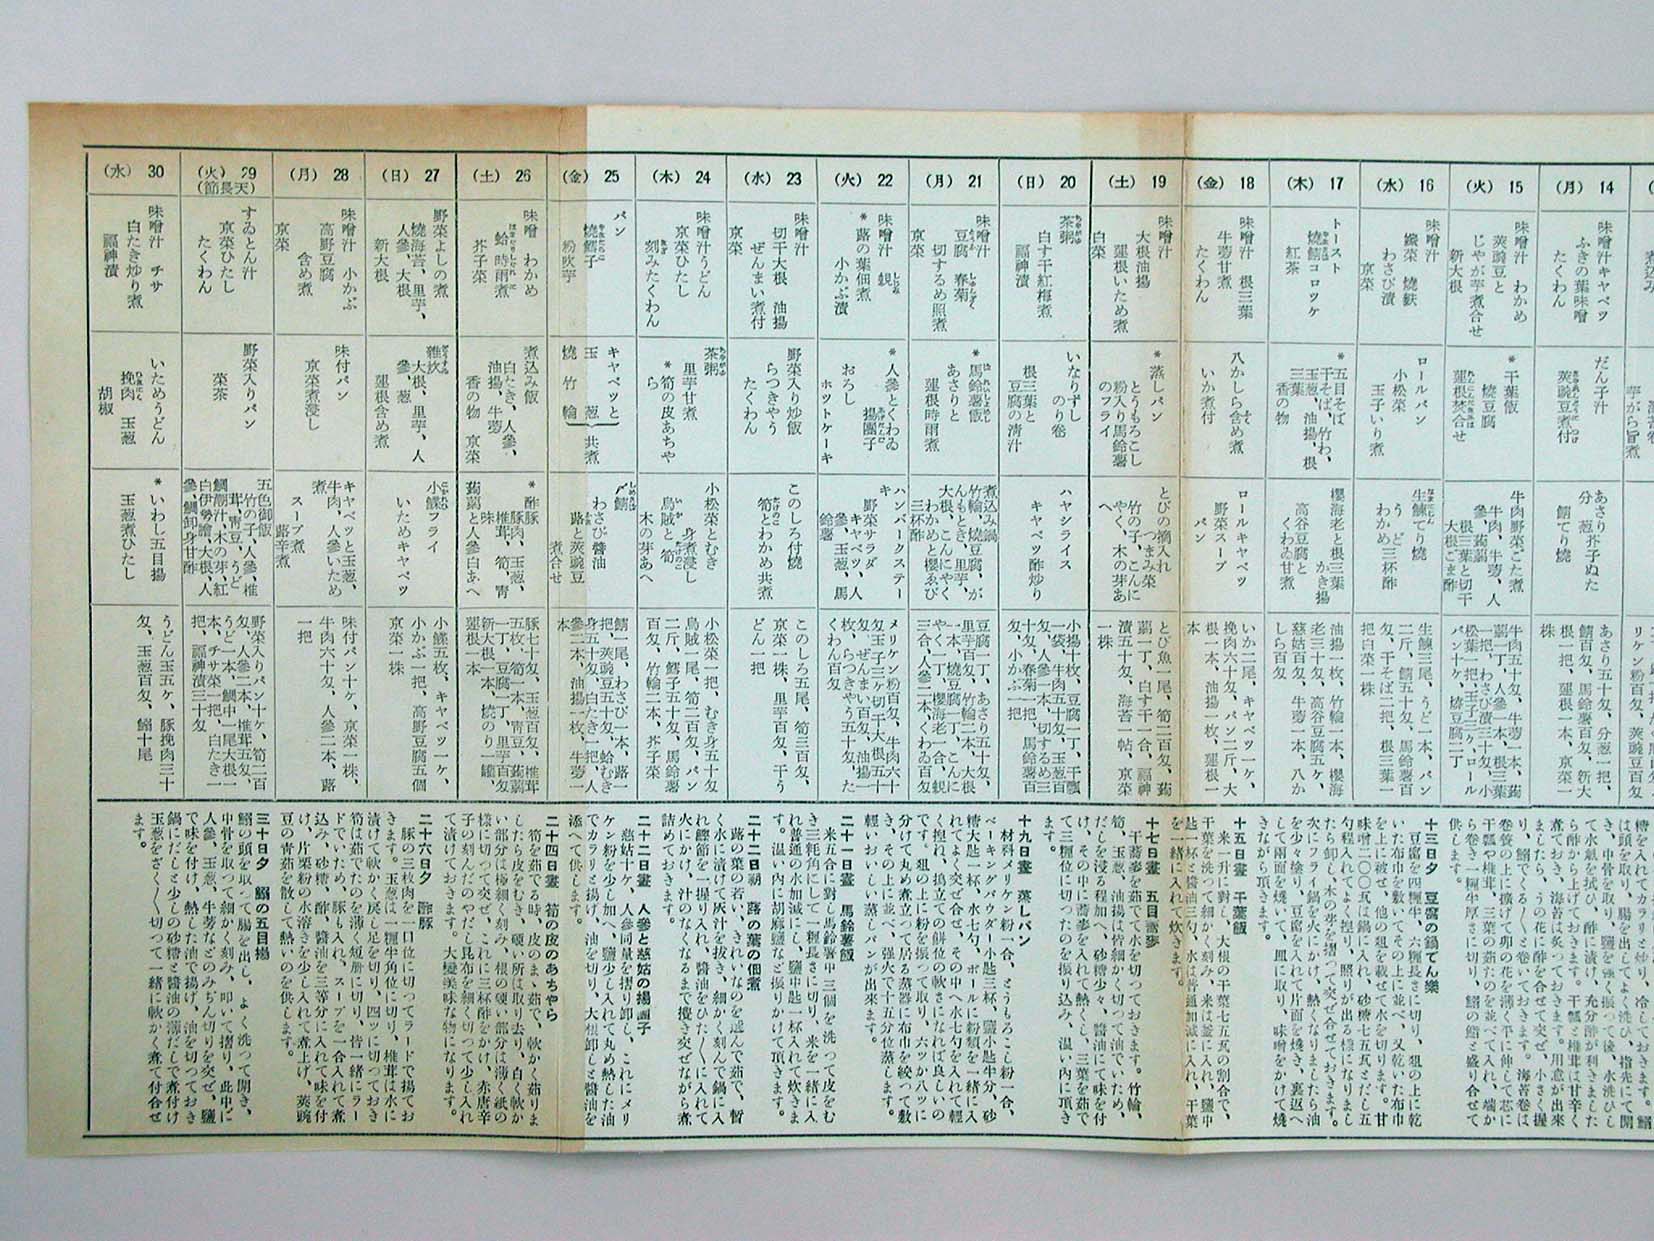 14 (月)
味噌汁キヤベツ
ふきの葉味噌
たくわん
だん子汁
莢豌豆煮付
あさり芥子ぬた
分葱
鯖てり燒
あさり五十匁、分葱一把、
鯖百匁、馬鈴薯百匁、新大
根一把、蓮根一本、京菜一
株
15 (火)
味噌汁　わかめ
莢豌豆と
じやが芋煮合せ
新大根
*干葉飯
燒豆腐
蓮根焚合せ
牛肉野菜ごた煮
牛肉、牛蒡、人
參、蒟蒻
根三葉と切干
大根ごま酢
牛肉五十匁、牛蒡一本、蒟
蒻一丁、人參一本、根三葉
一把、わさび漬三十匁、小
松菜一把、玉子二ケ、ロール
パン十ケ、燒豆腐二丁
16 (水)
味噌汁
纖菜　燒麩
わさび漬
京菜
ロールパン
小松菜
玉子いり煮
生鰊てり燒
うど三杯酢
わかめ
生鰊三尾、うど一本、パン
二斤、鯖五十匁、馬鈴薯百
匁、干そば二把、根三葉一
把白菜一株
17 (木)
トースト
燒鯖コロツケ
紅茶
*五目そば
干そば、竹わ、
玉葱、油揚、根
三葉
香の物
櫻海老と根三葉
かき揚
高谷豆腐と
くわゐ甘煮
油揚一枚、竹輪一本、櫻海
老三十匁、高谷豆腐五ケ、
慈姑百匁、牛蒡一本、八か
しら百匁
18 (金)
味噌汁　根三葉
牛蒡甘煮
たくわん
八かしら含め煮
いか煮付
ロールキヤベツ
野菜スープ
パン
いか二尾、キヤベツ一ケ、
挽肉六十匁、パン二斤、大
根一本、油揚一枚、蓮根一
本
19 (土)
味噌汁
大根油揚
蓮根いため煮
白菜
*蒸しパン
とうもろこし
粉入り馬鈴薯
のフライ
とびの摘入れ
つまみ菜
竹の子、こんに
やく、木の芽あ
へ
とび魚一尾、筍二百匁、蒟
蒻一丁、白す干一合、福神
漬五十匁、海苔一帖、京菜
一株
20 (日)
茶粥
白す干紅梅煮
福神漬
いなりずし
のり卷
根三葉と
豆腐の清汁
ハヤシライス
キヤベツ酢炒り
小揚十枚、豆腐一丁、干瓢
一袋、牛肉五十匁、玉葱百
匁、人參一本、切するめ三
十匁、春菊一把、馬鈴薯百
匁、小かぶ一把
21 (月)
味噌汁
豆腐　春菊
切するめ照煮
京菜
*馬鈴薯飯
あさりと
蓮根時雨煮
煮込み鍋
竹輪、燒豆腐、が
んもどき、里芋、
大根、こんにやく
わかめと櫻ゑび
三杯酢
豆腐一丁、あさり五十匁、
里芋百匁、竹輪二本、大根
一本、燒豆腐二丁、こんに
やく一丁、櫻海老一合、蜆
三合、人參二本くわゐ百匁
22 (火)
味噌汁　蜆
*蕗の葉佃煮
小かぶ漬
*人參とくわゐ
揚團子
おろし
ホツトケーキ
ハンバークステー
キ
野菜サラダ
キヤベツ、人
參、玉葱、馬
鈴薯
メリケン粉百匁、牛肉六十
匁玉子三ケ切干大根五十
匁、ぜんまい百匁、油揚一
枚、らつきやう五十匁、た
くわん百匁
23 (水)
味噌汁
切干大根　油揚
ぜんまい煮付
京菜
野菜入り炒飯
らつきやう
たくわん
このしろ付燒
筍とわかめ共煮
このしろ五尾、筍三百匁、
京菜一株、里芋百匁、干う
どん一把
24 (木)
味噌汁うどん
京菜ひたし
刻みたくわん
茶粥
里芋甘煮
*筍の皮あちや
ら
小松菜とむき
身煮浸し
烏賊と筍
木の芽あへ
小松菜一把、むき身五十匁
烏賊一尾、筍二百匁、パン
二斤、鱈子五十匁、馬鈴薯
百匁、竹輪二本、芥子菜
25 (金)
パン
燒鱈子
粉吹芋
キヤベツと
玉葱　共煮
燒竹輪
〆鯖
わさび醬油
蕗と莢豌豆
煮合せ
鯖一尾、わさび一本、蕗一
把、莢豌豆五十匁、蛤むき
身五十匁、白たき一把、人
參二本、油揚一枚、牛蒡一
本
26 (土)
味噌　わかめ
蛤　時雨煮
芥子菜
煮込み飯
白たき、人參、
油揚、牛蒡
香の物　京菜
*酢豚
豚肉、玉葱、
椎茸、筍、靑
味
蒟蒻と人參白あへ
豚七十匁、玉葱百匁、椎茸
五枚、筍一本、靑豆、蒟蒻
一丁、豆腐一丁、里芋百匁
新大根一本、燒のり一罐、
蓮根一本
27 (日)
野菜よしの煮
燒海苔、里芋、
人參、大根
新大根
雜炊
大根、里芋、人
參、葱
蓮根含め煮
小鰈フライ
いためキヤベツ
小鰈五枚、キヤベツ一ケ、
小かぶ一把、高野豆腐五個
京菜一株
28 (月)
味噌汁　小かぶ
高野豆腐
含め煮
京菜
味付パン
京菜煮浸し
キヤベツと玉葱、
牛肉、人參いため
煮
スープ煮
蕗辛煮
味付パン十ケ、京菜一株、
牛肉六十匁、人參二本、蕗
一把
29 (火)
(天長節)
すゐとん汁
京菜ひたし
たくわん
野菜入りパン
菜茶
五色御飯
竹の子、人參、椎
茸、靑豆、うど
鯛潮汁、木の芽、紅
白伊勢膾、大根、人
參、鯛卸し身甘酢
野菜入りパン十ケ、筍二百
匁、人參二本、椎茸五匁、
うど一本、鯛中一尾大根一
本、チサ菜一把、白たき一
把、福神漬三十匁
30 (水)
味噌汁　チサ
白たき炒り煮
福神漬
いためうどん
挽肉　玉葱
胡椒
*いわし五目揚
玉葱煮ひたし
うどん玉五ケ、豚挽肉三十
匁、玉葱百匁、鰯十尾
十三日夕　豆腐の鍋でん樂
豆腐を四糎牛、六糎長さに切り、俎の上に乾
いた布巾を敷いてその上に並べ、又乾いた布巾
を上に被せ、他の俎を載せて水を切ります。甘
味噌二〇〇瓦は鍋に入れ、砂糖七五瓦とだし五
勺程入れてよく捏り、照りが出る樣になりまし
たら卸し、木の芽を摺つて交ぜ合せておきます。
次にフライ鍋を火にかけ、熱くなりましたら油
を少々塗り、豆腐を入れて片面を燒き、裏返へ
して兩面を燒いて、皿に取り、味噌をかけて燒
きながら頂きます。
十五日晝　干葉飯
米一升に對し、大根の干葉七五瓦の割合で、
干葉を洗つて細かく刻み、米は釜に入れ、鹽中
匙一杯と醬油三勺、水は普通加減に入れ、干葉
を一緒に入れて炊きます。
十七日晝　五目蕎麥
干蕎麥を茹でて水を切つておきます。竹輪、
筍、玉葱、油揚は皆細かく切つて油でいため、
だしを浸る程加へ、砂糖少々、醬油にて味を付
け、その中に蕎麥を入れて熱くし、三葉を茹で
て三糎位に切つたのを振り込み、温い内に頂き
ます。
十九日晝　蒸しパン
材料メリケン粉一合、とうもろこし粉一合、
ベーキングパウダー小匙三杯、鹽小匙牛分、砂
糖大匙一杯、水七勺、ボールに粉類を一緒に入
れてよく交ぜ合せ、その中へ水七勺を入れて輕
く捏ね、搗立ての餅位の軟さになれば良しいの
です。俎の上に粉を振つて取り、六ツか八ツに
分けて丸め煮立つて居る蒸器に布巾を絞つて敷
き、その上に並べ、強火で十五分位蒸します。
輕いおいしい蒸しパンが出來ます。
二十一日晝　馬鈴薯飯
米五合に對し馬鈴薯中三個を洗つて皮をむ
き三粍角にして一糎長さに切り、米を一緒に入
れ普通の水加減にし、鹽中匙一杯入れて炊きま
す。温い内に胡麻鹽など振りかけて頂きます。
二十二日朝　蕗の葉の佃煮
蕗の葉の若い、きれいなのを選んで茹で、暫
く水に漬けて灰汁を拔き、細かく刻んで鍋に入
れ鰹節を一握り入れ、醬油をひた〳〵に入れて
火にかけ、汁のなくなるまで攪き交ぜながら煮
詰めておきます。
二十二日晝　人參と慈姑の揚團子
慈姑十ケ、人參同量を摺り卸し、これにメリ
ケン粉を少し加へ、鹽少し入れて丸め熱した油
でカラリと揚げ、油を切り、大根卸しと醬油を
添へて供します。
二十四日晝　筍の皮のあちやら
筍を茹でる時、皮のまゝ茹で、軟かく茹りま
したら皮をむき、硬い所は取り去り、白く軟か
い部分は極細く刻み、根の硬い部分は薄く紙の
樣に切つて交ぜ、これに三杯酢をかけ、赤唐辛
子の刻んだのやだし昆布を細く切つて少し入れ
て漬けておきます。大變美味な物になります。
二十六日夕　酢豚
豚の三枚肉を一口位に切つてラードで揚てお
きます。玉葱は一糎牛角位に切り、椎茸は水に
漬けて軟かく戾し足を切り、四ツに切つておき
筍は茹でたのを薄く短册に切り、皆一緒にラー
ドでいため、豚も入れ、スープを一合入れて煮
込み、砂糖、酢、醬油を三等分に入れて味を付
け、片栗粉の水溶きを少し入れて煮上げ、莢豌
豆の靑茹を散して熱いのを供します。
三十日夕　鰯の五目揚
鰯の頭を取つて腸を出し、よく洗つて開き、
中骨を取つて細かく刻み、叩いて摺り、此中に
人參、玉葱、牛蒡などのみぢん切りを交ぜ、鹽
で味を付け、熱した油で揚げ、油を切つておき
鍋にだしと少しの砂糖と醬油の薄だしで煮付け
玉葱をざく〳〵切つて一緒に軟かく煮て付合せ
ます。